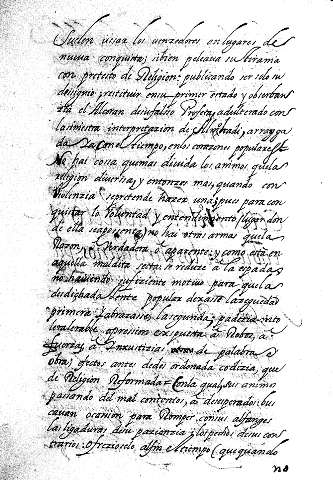 Suelen vssar los venzedores en lugares de
nueua conquista; sibien peleaua su tirania
con pretexto de Religion: publicando ser solo su
designio, restituir en su primer estado y obseruan
el Alcoran de su falso Profeta, adulterado con
la siniestra interpretazion de Almohadi, arrayga
da con el tiempo, en los corazones populares
No hai cossa que mas diuida los animos, que la
religion diuersa, y entonzes mas, quando con
violenzia se pretende hazer una; pues para con
quistar la Voluntad y entendimiento
de ella no hai otras armas que la
Razon, Verdadera aparente; y como esta en
aquella maldita secta se reduze a la espada,
no hauiendo sufiziente motiuo para que la
desdichada gente popular dexasse la zeguedad
primera, y abrazasse la segunda; padezia in
tolerable opresion expuesta a Robos, a
fuerzas, a Inxustizias de palabra y
obra; efectos antes de desordenada codizia, que
de Religion Reformada. Con la qual sus animos
passando del mal contentos, a desesperados; bus
cauan ocasion para Romper, con sus alfanges
las ligaduras de su pazienzia, y los pechos de sus con
trarios. Ofreziosela al fin el tiempo (que quando
no